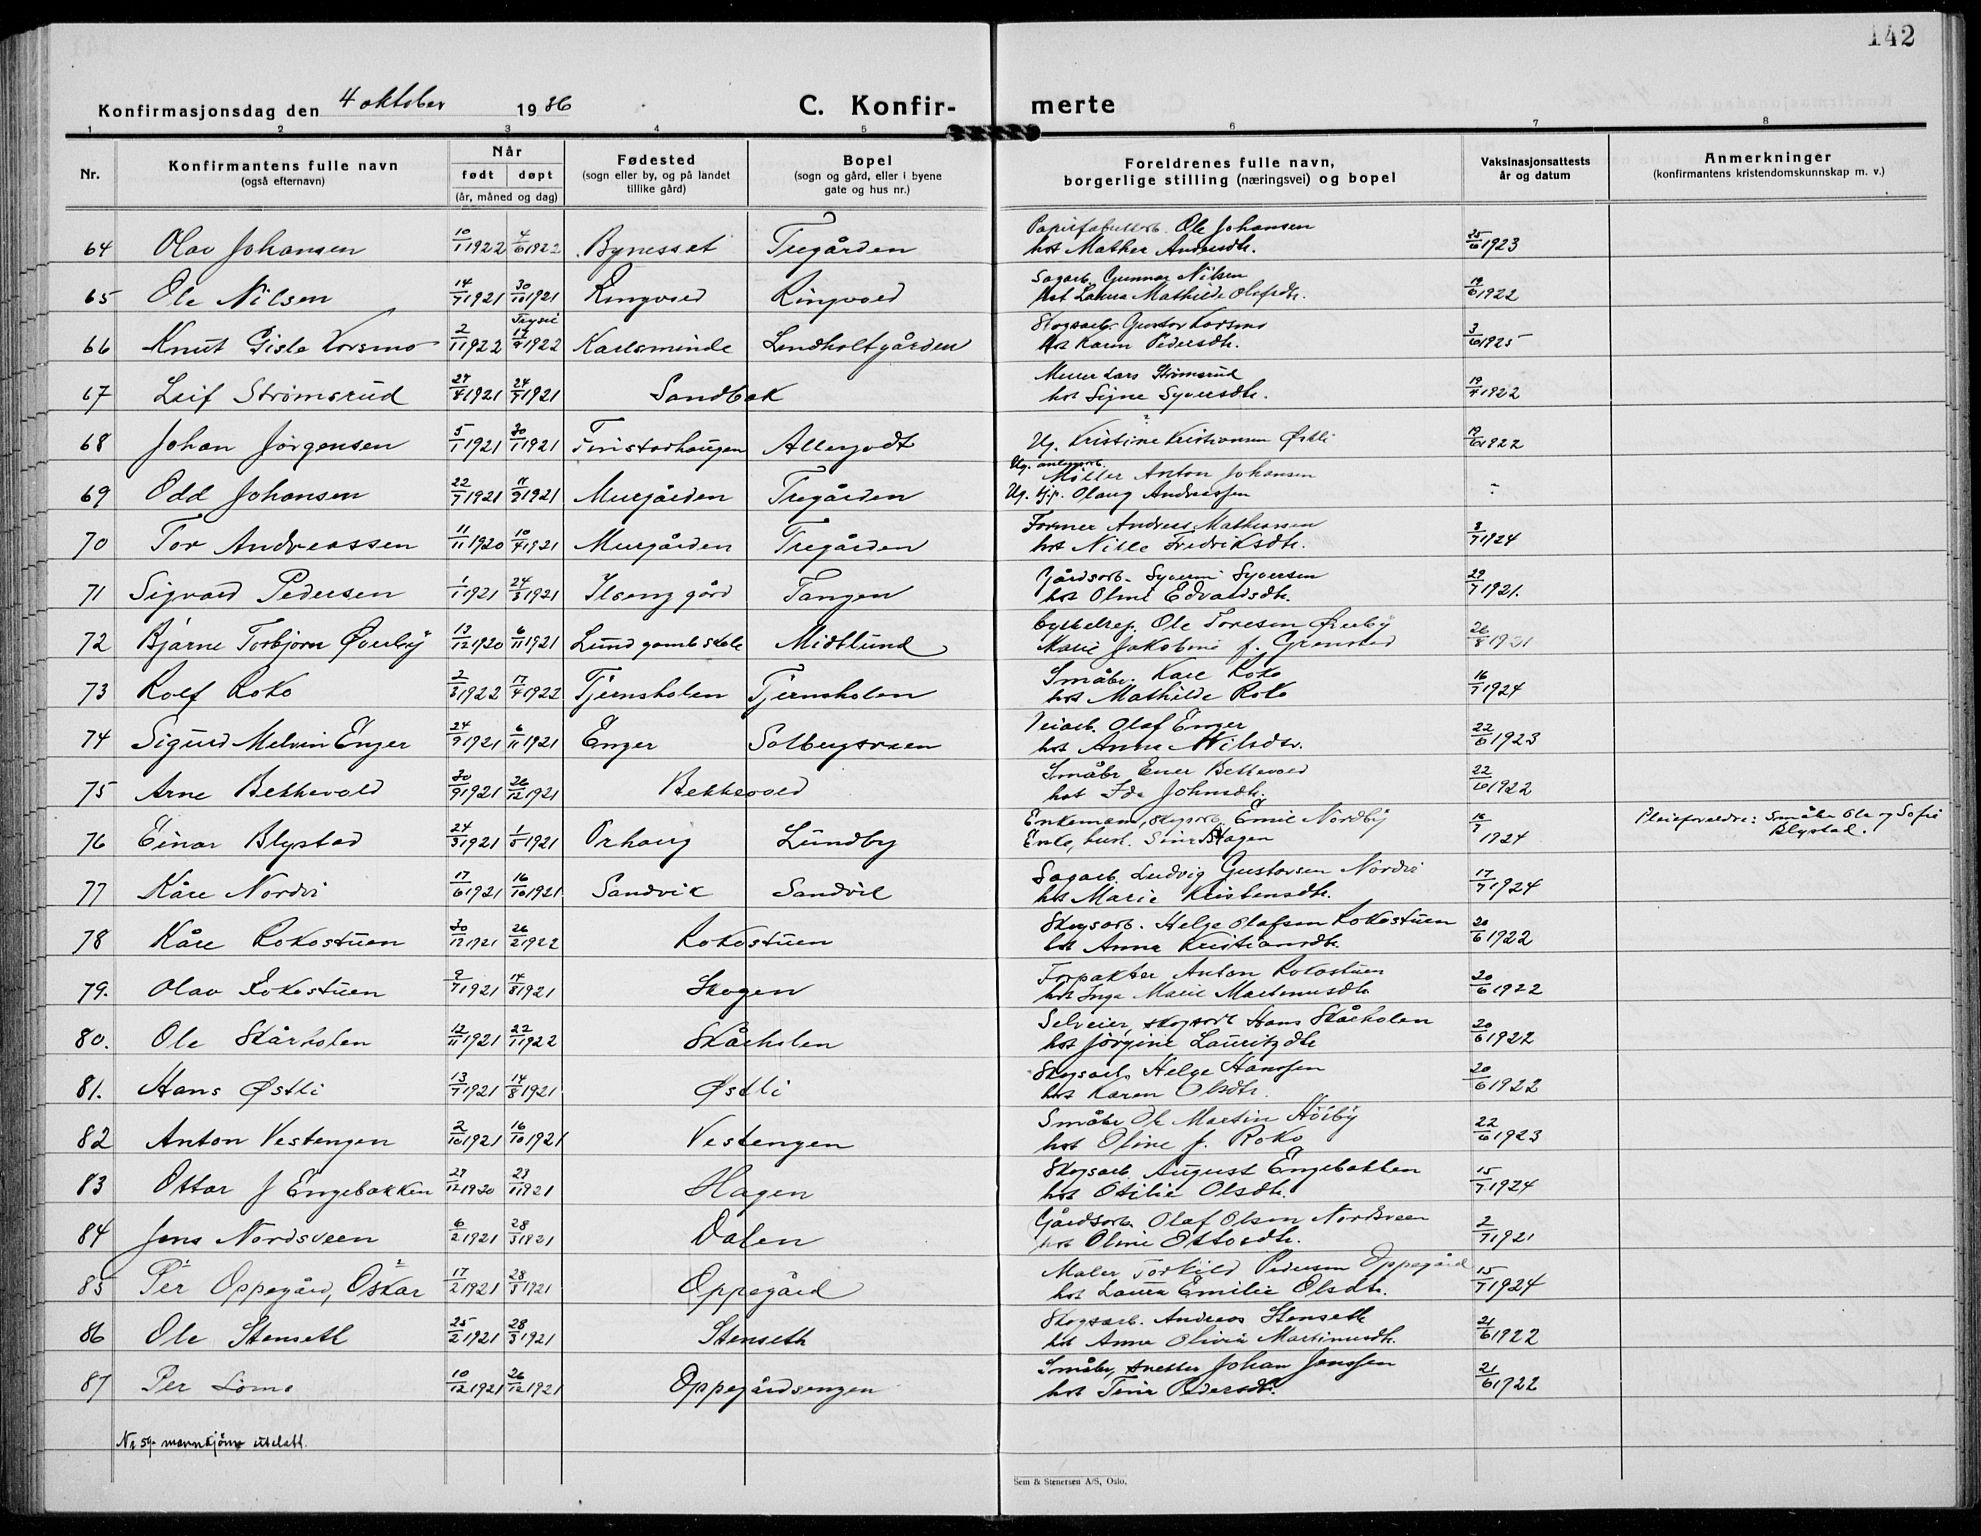 142
Konfirmasjonsdag den 4 oktober 1936
C. Konfir- merte
1 2 3 4 5 6 7 8
Nr.
Konfirmantens fulle navn
(også efternavn)
Når
født døpt
(år, måned og dag)
Fødested
(sogn eller by, og på landet
tillike gård)
Bopel
(sogn og gård, eller i byene
gate og hus nr.)
Foreldrenes fulle navn,
borgerlige stilling (næringsvei) og bopel
Vaksinasjonsattests
år og datum
Anmerkninger
(konfirmantens kristendomskunnskap m. v.)
64 Olav Johansen 10/1 1922 4/6 1922 Bynesset Tregården
Ole Johansen
hst Mathea Andersdtr. 25/6 1923
65 Ole Nilsen 14/7 1921 30/10 1921 Ringvold Ringvold
Sagarb. Gunnar Nilsen
hst Laura Mathilde Olafsdtr. 19/6 1922
Trysil
66 Knut Gisle Korsmo 2/1 1922 17/4 1922 Karlsminde Lundholtgården
Skogsarb. Gustav Korsmo
hst Karen Pedersdtr. 3/6 1925
67 Leif Strømsrud 27/4 1921 24/7 1921 Sandbak
Murer Lars Strømsrud
hst Signe Syversdtr. 19/4 1922
68 Johan Jørgensen 5/1 1921 30/1 1921 Finstadhaugen
Ug. Kristine Kristiansen Østli 19/6 1922
69 Odd Johansen 22/7 1921 11/9 1921 Murgården Tregården
Ug. Møller Anton Johansen
Ug. tj.p. Olaug Andreassen -
70 Tor Andreassen 11/11 1920 10/4 1921 Murgården Tregården
Former Andreas Mathiassen
hst Nille Fredriksdtr. 8/7 1924
71 Sigvard Pedersen 1/1 1921 24/3 1921 Ilseng gård Tangen
Gårdsarb. Syver Syversen
hst Oline Edvardsdtr. 29/7 1921.
72 Bjarne Torbjørn Øverby 13/12 1920 6/11 1921 Lund gamle skole Midtlund
Ole Toresen Øverby
Marie Jakobine f. Grønstad 26/8 1931
73 Rolf Roko 2/3 1922 17/4 1922 Tjernsholen Tjernsholen
Småbr. Karl Roko
hst Mathilde Roko 16/7 1924
74 Sigurd Melvin Enger 24/9 1921 6/11 1921 Enger Solbergsveen
Veiarb. Olaf Enger
hst Anna Nilsdtr. 22/6 1923
75 Arne Bekkevold 30/9 1921 26/12 1921 Bekkevold
Småbr Ener Bekkevold
hst Ida Johnsdtr. 22/6 1922
76 Einar Blystad 24/3 1921 1/5 1921 Orhaug Lundby
Enkemann, skogsarb. Emil Nordby
Enke, husl. Hagen 16/7 1924
Pleieforeldre: Småbr Ole og Sofie
Blystad.
77 Kåre Nordvi 17/6 1921 16/10 1921 Sandvik Sandvik
Sagarb. Ludvig Gustavsen Nordvi
hst Marie Kristensdtr. 17/7 1924
78 Kåre Rokostuen 30/12 1921 26/2 1922 Rokostuen
Skogsarb. Helge Olafsen Rokostuen
hst Anna Kristiansdtr. 20/6 1922
79. Olav Rokostuen 9/7 1921 14/8 1921 Skogen
Forpakter Anton Rokostuen
hst Inga Marie Martinusdtr. 20/6 1922
80. Ole Skårholen 12/11 1921 22/1 1922 Skårholen
Selveier, skogsarb Hans Skårholen
hst Jørgine Lauritzdtr 20/6 1922
81. Hans Østli 13/7 1921 14/8 1921 Østli
Skogsarb. Helge Hanssen
hst Karen Olsdtr. 20/6 1922
82 Anton Vestengen 2/10 1921 16/10 1921 Vestengen
Småbr Ole Martin Høiby
hst Oline f. Roko 22/6 1923
83 Ottar J Engebakken 27/12 1920 23/1 1921 Hagen
Skogsarb. August Engebakken
hst Otilie Olsdtr. 15/7 1924
84 Jens Nordsveen 6/2 1921 28/3 1921 Dalen
Gårdsarb. Olaf Olsen Nordsveen
hst Oline Ottosdtr. 2/7 1921
85 Per² Oppegård, Oskar¹ 17/2 1921 28/3 1921 Oppegård
Maler Torkild Pedersen Oppegård
hst Laura Emilie Olsdtr. 15/7 1924
86 Ole Stenseth 25/2 1921 28/3 1921 Stenseth
Skogsarb. Andreas Stenseth
hst Anna Olivia Martinusdtr. 21/6 1922
87 Per Lømo 10/12 1921 26/12 1921 Oppegårdsengen
Småbr, snekker Johan Jenssen
hst Tina Pedersdtr. 21/6 1922
Nr 54 mannkjønn utelatt.
Sem & Stenersen A/S, Oslo.